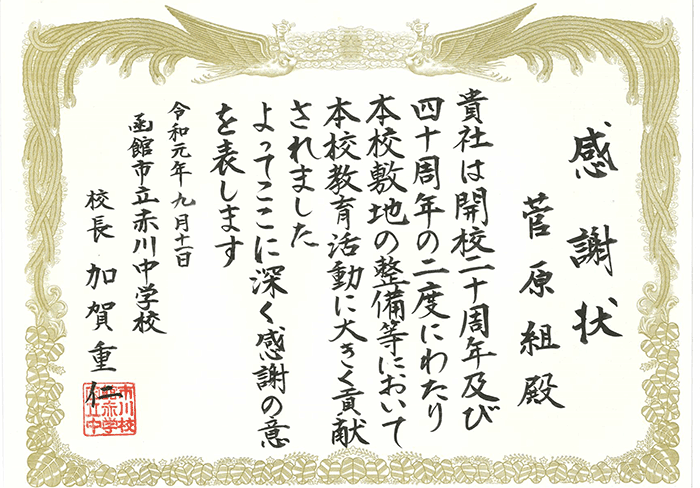 感謝状
菅原組殿
貴社は開校二十周年及び
四十周年の二度にわたり
本校敷地の整備等において
本校教育活動に大きく貢献
されました
よってここに深く感謝の意
を表します
令和元年九月十一日
函館市立赤川中学校
校長 加賀重仁
市川校
館赤学
函立中